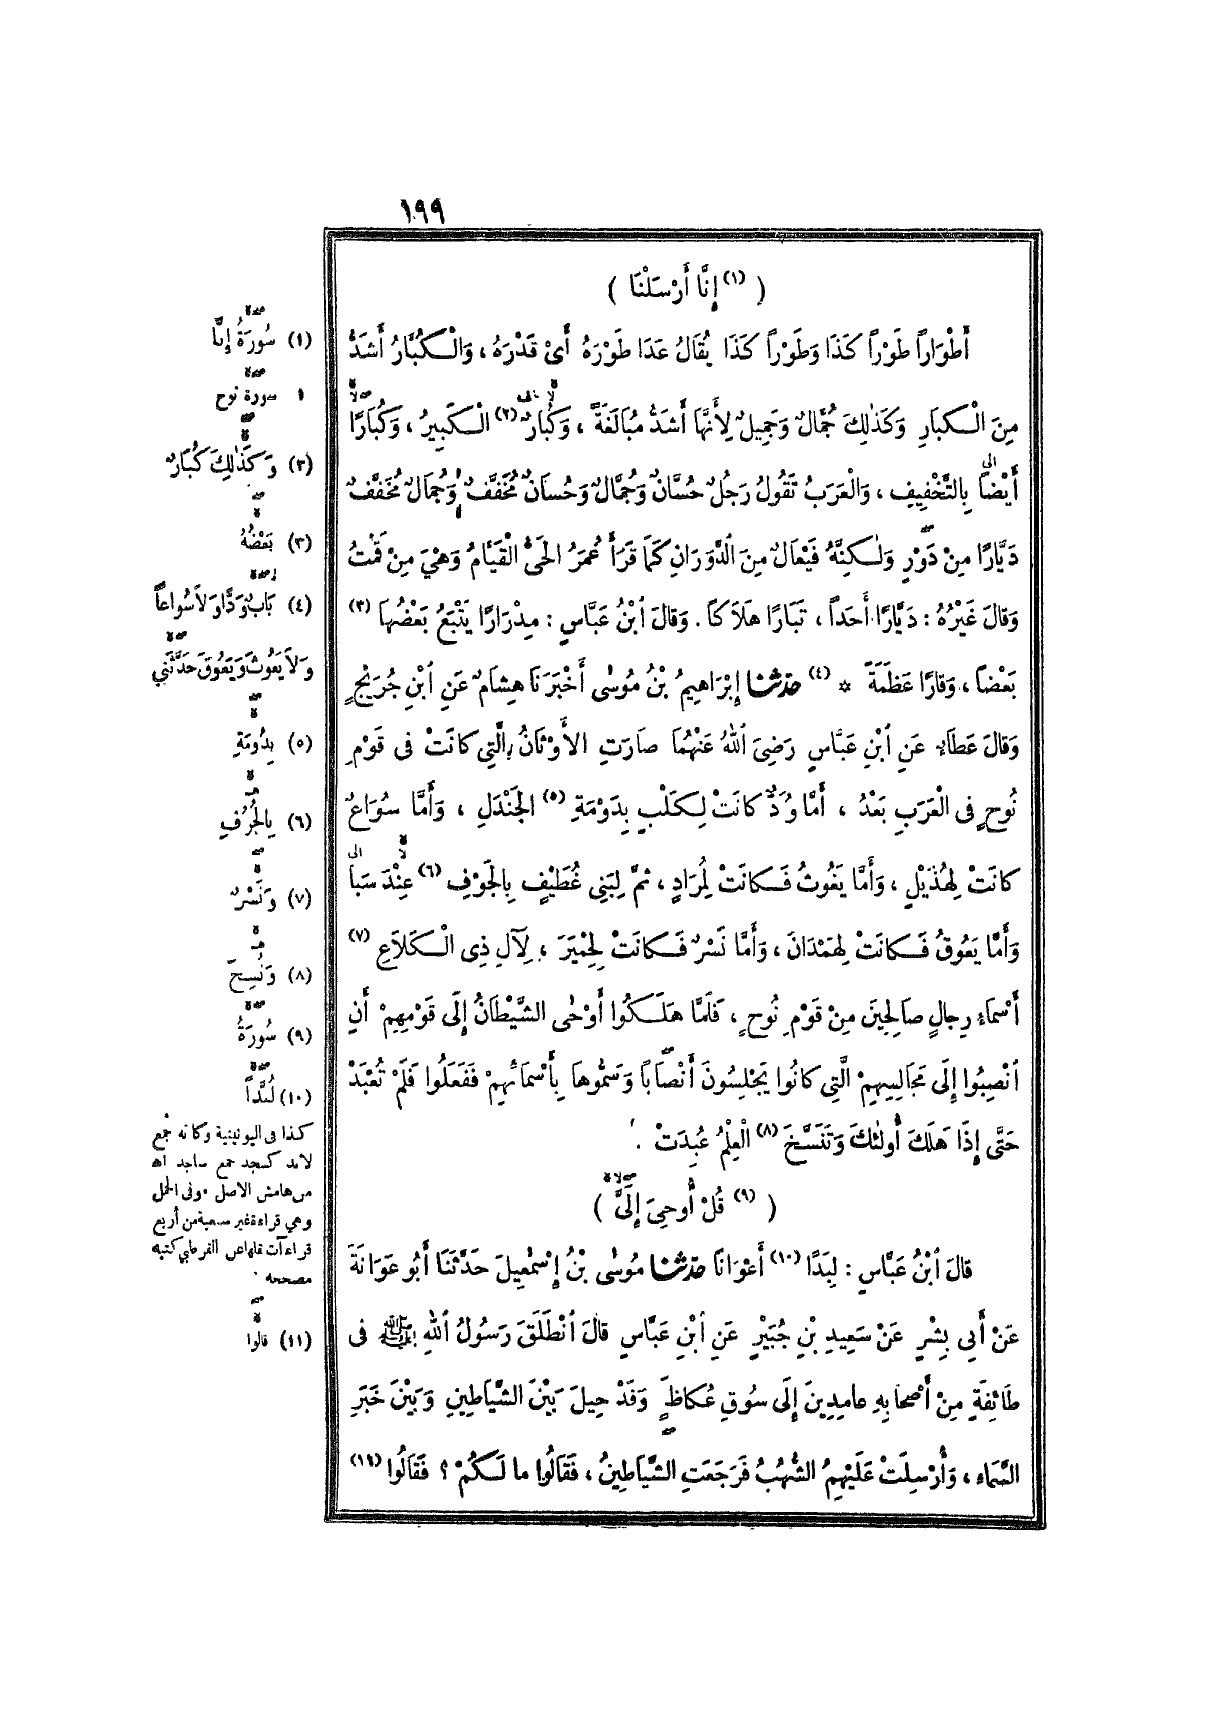 ١٩٩
( (١) إِنَّا أَرْسَلْنَا )
أَطْوَاراً طَوْراً كَذَا وَطَوْراً كَذَا يُقَالُ عَدَا طَوْرَهُ أَىْ قَدْرَهُ ، وَالْكُبَّارُ أَشَدُّ
مِنَ الْكِبَارِ وَكَذٰلِكَ جُمَّالٌ وَجَمِيلٌ لِأَنَّهَا أَشَدُّ مُبَالَغَةً ، وَكُبَّارٌ (٢) الْكَبِيرُ ، وَكُبَارًا
أَيْضاً بِالتَّخْفِيفِ ، وَالْعَرَبُ تَقُولُ رَجُلٌ حُسَّانٌ وَجُمَّالٌ وَحُسَانٌ مُخَفَّفٌ وَجُمَالٌ مُخَفَّفٌ
دَيَّارًا مِنْ دَوْرٍ وَلٰكِنَّهُ فَيْعَالٌ مِنَ الدَّوَرَانِ كَمَا قَرَأَ عُمَرُ الْحَىُّ الْقَيَّامُ وَهْىَ مِنْ قُمْتُ
وَقَالَ غَيْرُهُ : دَيَّارًا أَحَداً ، تَبَارًا هَلَاكاً . وَقَالَ ابْنُ عَبَّاسٍ : مِدْرَارًا يَتْبَعُ بَعْضُهَا (٣)
بَعْضاً ، وَقَارًا عَظَمَةً * (٤) حَدَّثَنَا إِبْرَاهِيمُ بْنُ مُوسٰى أَخْبَرَنَا هِشَامٌ عَنِ ابْنِ جُرَيْجٍ
وَقَالَ عَطَاءٌ عَنِ ابْنِ عَبَّاسٍ رَضِىَ اللهُ عَنْهُمَا صَارَتِ الْأَوْثَانُ الَّتِى كَانَتْ فِى قَوْمِ
نُوحٍ فِى الْعَرَبِ بَعْدُ ، أَمَّا وُدٌّ كَانَتْ لِكَلْبٍ بِدَوْمَةِ (٥) الْجَنْدَلِ ، وَأَمَّا سُوَاعٌ
كَانَتْ لِهُذَيْلٍ ، وَأَمَّا يَغُوثُ فَكَانَتْ لِمُرَادٍ ، ثُمَّ لِبَنِى غُطَيْفٍ بِالْجَوْفِ (٦) عِنْدَ سَبَا
وَأَمَّا يَعُوقُ فَكَانَتْ لِهَمْدَانَ ، وَأَمَّا نَسْرٌ فَكَانَتْ لِحِمْيَرَ ، لِآلِ ذِى الْكَلَاعِ (٧)
أَسْمَاءُ رِجَالٍ صَالِحِينَ مِنْ قَوْمِ نُوحٍ ، فَلَمَّا هَلَكُوا أَوْحٰى الشَّيْطَانُ إِلَى قَوْمِهِمْ أَنِ
انْصِبُوا إِلَى مَجَالِسِهِمِ الَّتِى كَانُوا يَجْلِسُونَ أَنْصَاباً وَسَمُّوهَا بِأَسْمَائِهِمْ فَفَعَلُوا فَلَمْ تُعْبَدْ
حَتَّى إِذَا هَلَكَ أُولٰئِكَ وَتَنَسَّخَ (٨) الْعِلْمُ عُبِدَتْ .
( (٩) قُلْ أُوحِىَ إِلَىَّ )
قَالَ ابْنُ عَبَّاسٍ : لِبَدًا (١٠) أَعْوَاناً حَدَّثَنَا مُوسٰى بْنُ إِسْمٰعِيلَ حَدَّثَنَا أَبُو عَوَانَةَ
عَنْ أَبِى بِشْرٍ عَنْ سَعِيدِ بْنِ جُبَيْرٍ عَنِ ابْنِ عَبَّاسٍ قَالَ انْطَلَقَ رَسُولُ اللهِ ﷺ فِى
طَائِفَةٍ مِنْ أَصْحَابِهِ عَامِدِينَ إِلَى سُوقِ عُكَاظٍ وَقَدْ حِيلَ بَيْنَ الشَّيَاطِينِ وَبَيْنَ خَبَرِ
السَّمَاءِ ، وَأُرْسِلَتْ عَلَيْهِمِ الشُّهُبُ فَرَجَعَتِ الشَّيَاطِينُ ، فَقَالُوا مَا لَكُمْ ؟ فَقَالُوا (١١)
(١) سُورَةُ إِنَّا
١ سورة نوح
(٢) وَكَذٰلِكَ كُبَّارٌ
(٣) بَعْضُهُ
(٤) بَابٌ وَدًّا وَلاَ سُوَاعاً
وَلاَ يَغُوثَ وَيَعُوقَ حَدَّثَنِى
(٥) بِدُومَةِ
(٦) بِالْجُرُفِ
(٧) وَنَسْرٌ
(٨) وَنُسِخَ
(٩) سُورَةُ
(١٠) لُبَّداً
كذا فى اليونينية وكانه جُمع
لابد كسجد جمع ساجد اه
من هامش الاصل . وفى الجمل
وهي قراءة غير سبعية من أربع
قراءآت نقلها عن القرطبي كتبه
مصححه .
(١١) قالوا